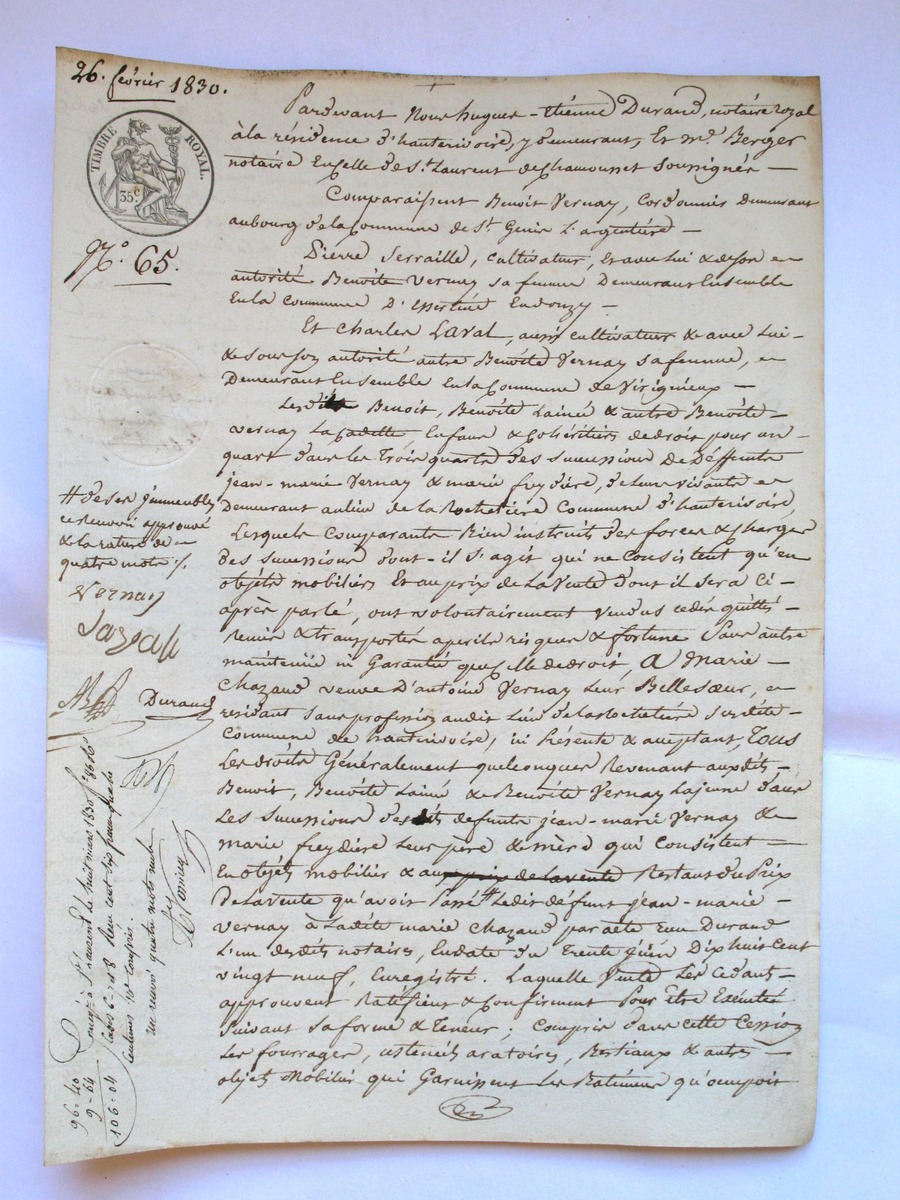 26. février 1830.
TIMBRE ROYAL.
35 c
N.° 65.
Pardevant Nous hugues-étienne Durand, notaire royal
à la résidence d'hauterivoire, y demeurant, Et m.e Berger
notaire En celle de S.t Laurent de Chamousset soussignés —
Comparaissent Benoit Vernay, Cordonnier demeurant
au bourg de la Commune de S.t Genis L'argentière —
Pierre Serraille, cultivateur, et avec lui & de son
autorité Benoite Vernay sa femme Demeurans Ensemble
En la Commune D'Essertine En donzy —
Et Charles Laval, aussi cultivateur & avec lui
& de sous son autorité autre Benoite Vernay sa femme,
Demeurant Ensemble En la Commune de Virigneux —
Lesdits Benoit, Benoite Lainée & autre Benoite
vernay La Cadette, Enfans & Cohéritiers de droit pour un
quart dans les Trois quarts des successions de Deffunts
jean-marie Vernay & marie freydière, de leur vivants
Demeurant au lieu de la Rochetière Commune d'hauterivoire,
Lesquels Comparants Bien instruits des forces & charges
des successions dont-il s'agit qui ne Consistent qu'en
objets mobiliers Et au prix de La Vente dont il sera Ci-
après parlé, ont volontairement vendus cédés quittés
Remis & transportés à perils risques & fortune Sans autre
maintenue ni Garantie que celle de droit, A Marie
Chazaud veuve D'antoine Vernay Leur Belle soeur,
résidant sans profession audit Lieu de la rochetière susdite
Commune de hauterivoire, ici Présente & acceptant, Tous
Les droits Généralement quelconques Revenant auxdits
Benoit, Benoite Lainé & Benoite Vernay La jeune dans
Les successions desdits defunts jean-marie Vernay &
marie freydière Leur père & mère qui Consistent
En objets mobilier & au prix de la vente Restant du Prix
De la vente qu'avoit Passé # Ledit défunt jean-marie
vernay à Ladite marie Chazaud par acte reçu Durand
L'un desdits notaires, En date du Trente juin Dix huit Cent
vingt neuf, Enregistré. Laquelle Vente Les Cédants
approuvent Ratifient & Confirment Pour être Exécutée
Suivant sa forme & Teneur; Compris dans cette Cession
Les fourrages, ustensils aratoires, Bestiaux & autres
objets Mobilier qui Garnissent Les Batimens qu'occupoit
# de ses jmmeubles
ce renvoi approuvé
& la rature de
quatre mots ./.
Vernay
Durand
à S.t Laurent le huit mars 1830
cases 6 et
Centimes compris.
un renvoi quatre mots nuls
96-40
9-64
106-04